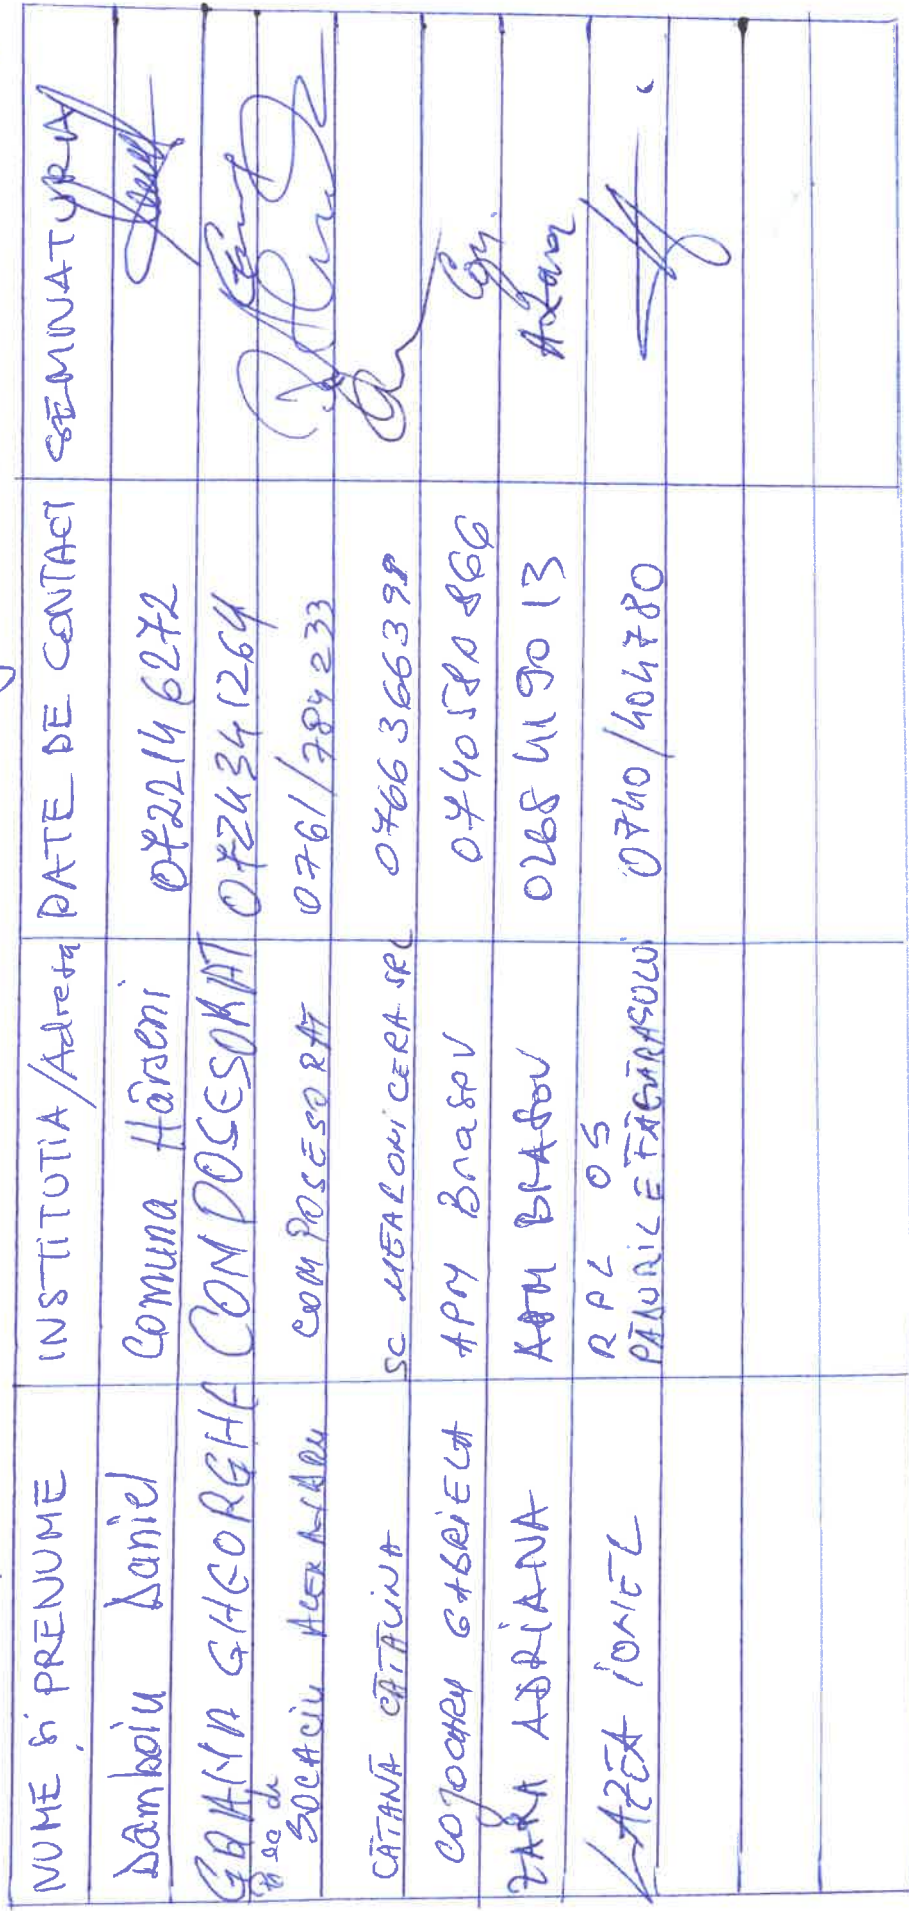 NUME ȘI PRENUME INSTITUTIA/Adresa DATE DE CONTACT SEMNATURA
Damboiu Daniel Comuna Hârseni 0722146272
GRAMA GHEORGHE COMPOSESORAT 0724341264
SOCACIU ALEXANDRU COMPOSESORAT 0761/784233
CĂTANĂ CĂTĂLINA SC MEALONICERA SRL 0766366398
COJOCARU GABRIELA APM Brasov 0740580866
ZARA ADRIANA BRASOV 0268419013 AZara
RPL OS
LAZEA IONEL PĂDURILE FĂGĂRASULUI 0740/404780